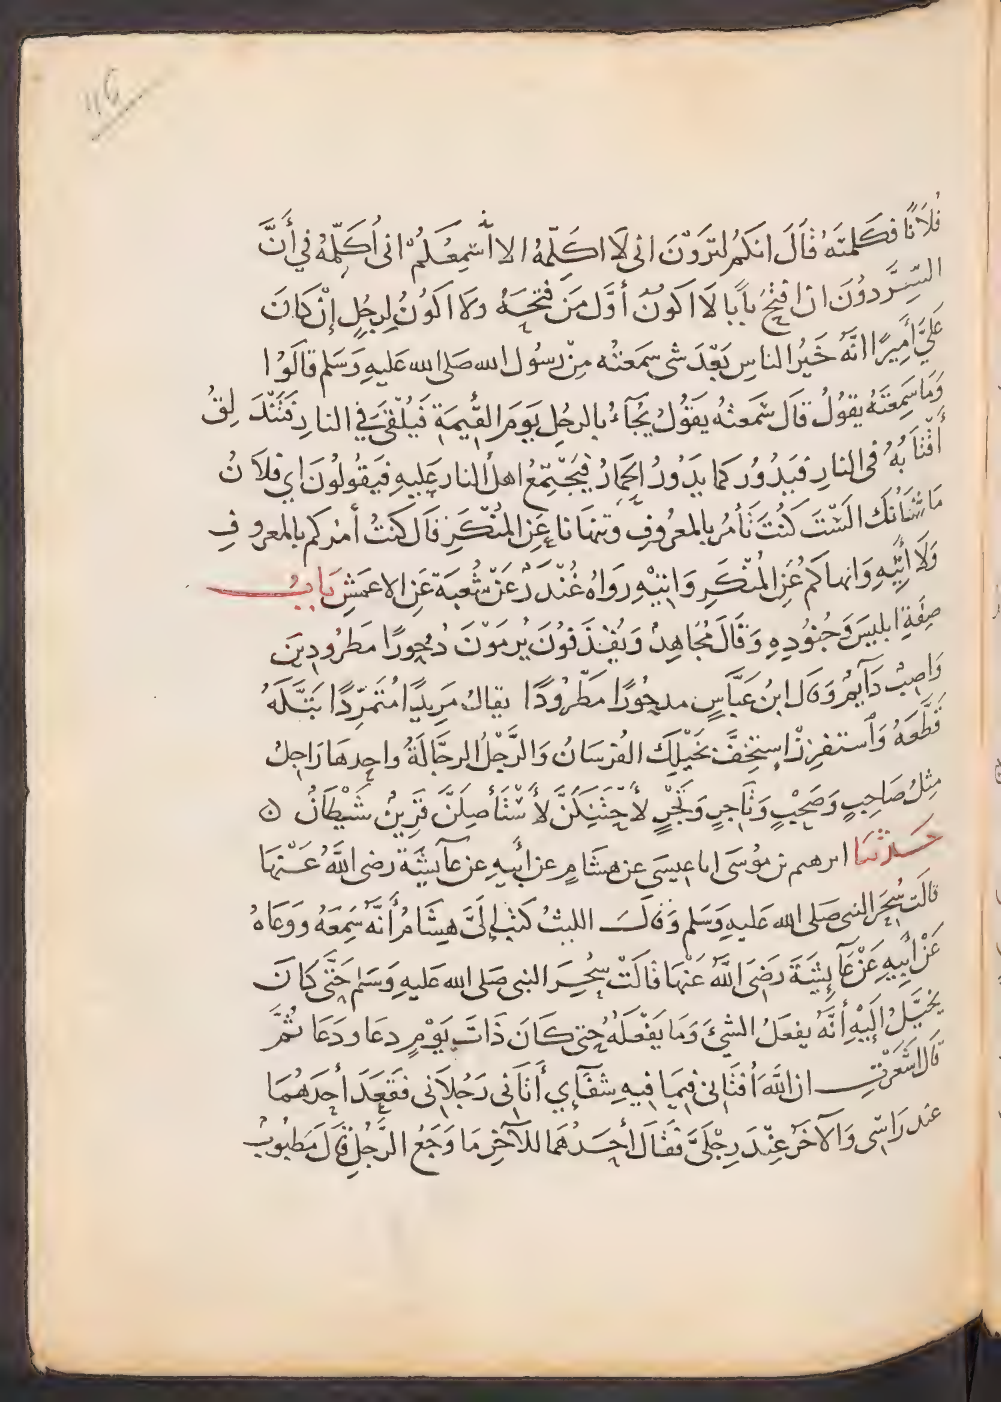 ١١٥
فُلَانًا فكَلمتَهُ قَالَ انكم لتَرَوْنَ انى لَا اكَلِّمهُ الا أُسْمِعُكُمْ انى أُكَلِّمهُ في أَنَّ
السِّرِّ دوُنَ ان افتحَ بَابًا لَا اكونُ أَوَّلَ مَن فتحَهُ ولَا اكونُ لِرجُلٍ إنْ كانَ
عَليَّ أَمِيرًا انَّهُ خَيرُ الناسِ بَعْدَ شى سَمعتُه مِنْ رسُول الله صَلى الله عَليهِ وَسَلم قالَوُا
وَمَا سَمِعتَهُ يقولُ قالَ سَمعتُهُ يَقُولُ يُجآءُ بالرجُلِ يَومَ القيمَةِ فَيُلْقىَ في النارِ فتَنْدَلِقُ
أَقتَابُهُ فى النارِ فيَدُورُ كما يَدُورُ الحِمارُ فيَجْتمِعُ اهلُ النار عَليهِ فيَقولُونَ اي فلَانُ
مَا شَأنُك السْتَ كُنتَ تَأمُرُ بالمعرُوفِ وتنهانا عَنِ المُنْكَرِ قَال كنتُ أمرُكم بالمعروفِ
وَلَا أتِيهِ وَانهاكم عَنِ المُنكَرِ وَاتيهِ رَوَاهُ غُنْدَرٌ عَنْ شُعبَة عَنِ الاعمَشِ بَابُ
صِفَةِ ابليسَ وَجنُودِهِ وَقَالَ مُجَاهِدٌ وَيُقْذَفُونَ يُرمَوْنَ دُحُورًا مَطرُودِينَ
وَاصِبٌ دَآيِمٌ وَقال ابنُ عَبَّاسٍ مدحُورًا مَطْرُودًا يقالُ مَرِيدًا مُتَمَرِّدًا بَتَّكَهُ
قَطَّعَهُ وَاستفزِزْ اسْتَخِفَّ بخَيْلِكَ الفُرسَانُ وَالرَّجْلُ الرجَّالَةُ واحِدهَا رَاجِلٌ
مثِلُ صَاحِبٍ وَصَحْبٍ وَتَاجرٍ وَتَجْرٍ لأَحْتَنِكَنَّ لَأسْتَأصِلَنَّ قَرِينٌ شَيْطَانٌ ۞
حَدثنَا ابرهيم بن موُسَى انا عيسَى عن هشَامٍ عن أبيهِ عن عآيشَة رضى اللهُ عَنْهَا
قالَت سُحِرَ النبى صَلى الله عَليهِ وَسَلم وَقالَ الليثُ كتبَ إلَىَّ هِشَامٌ أَنَّه سَمِعَهُ وَوَعَاهُ
عَنْ أبيهِ عَنْ عَآيِشَةَ رَضىَ اللَّهُ عَنْهَا قالَتْ سُحِرَ النبى صَلى الله عَليهِ وَسَلم حَتَّى كانَ
يخيَّلُ إليْهِ أنَّهُ يفعَلُ الشىَ وَمَا يَفْعَلهُ حتى كانَ ذَاتَ يَوْمٍ دعَا ودَعَا ثمَّ
قَال أشَعَرْتِ ان اللَّهَ أفتَانى فيمَا فيهِ شفَآئِي أَتَانى رَجُلاَنِ فقعَدَ أحدَهُمَا
عند رَاسِى وَالآخرُ عِنْدَ رِجْلَيَّ فقالَ أحَدُهُما للآخِر مَا وَجَعُ الرَّجُلِ قَالَ مَطبُوبٌ